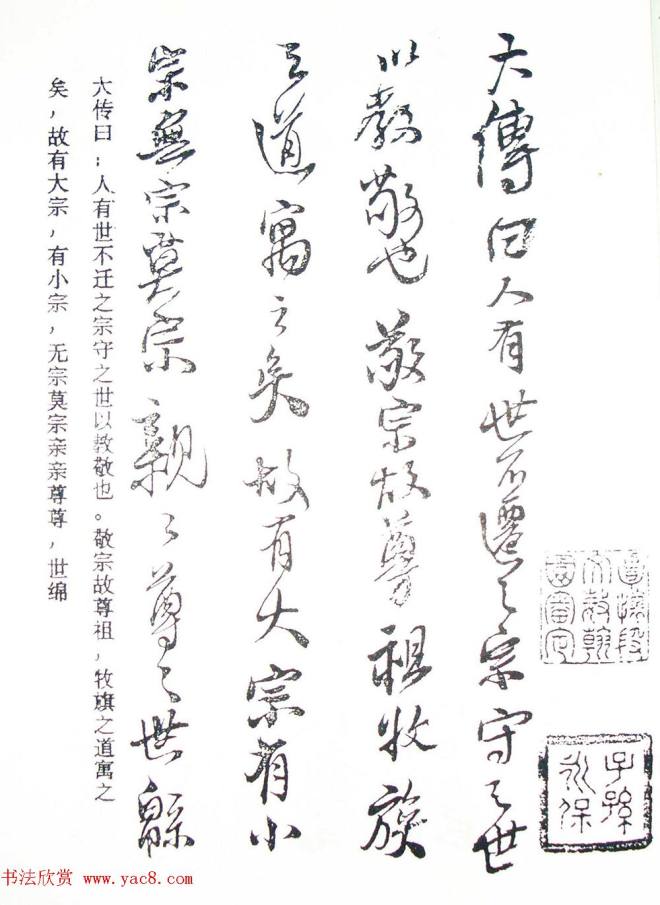 子孫
永保
大傳曰人有世不遷之宗守之世
以教敬也敬宗故尊祖牧族
之道寓之矣故有大宗有小
宗無宗莫宗親〻尊〻世緜
大传曰；人有世不迁之宗守之世以教敬也。敬宗故尊祖，牧旗之道寓之
矣，故有大宗，有小宗，无宗莫宗亲亲尊尊，世绵
书法欣赏 www.yac8.com